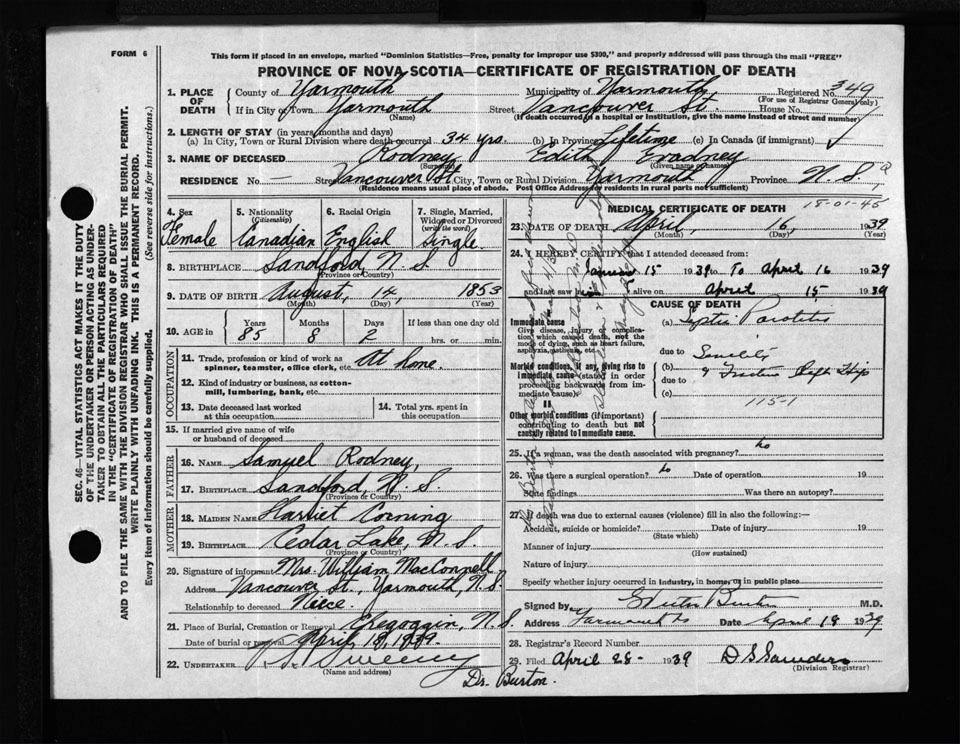 FORM 6
This form if placed in an envelope, marked "Dominion Statistics—Free, penalty for improper use $300," and properly addressed will pass through the mail "FREE"
PROVINCE OF NOVA SCOTIA—CERTIFICATE OF REGISTRATION OF DEATH
1. PLACE OF DEATH County of Yarmouth Municipality of Yarmouth Registered No. 349
(For use of Registrar General only)
If in City or Town Yarmouth Street Vancouver St. House No.
(Name) (If death occurred in a hospital or institution, give the name instead of street and number)
2. LENGTH OF STAY (in years, months and days)
(a) In City, Town or Rural Division where death occurred 34 yrs. (b) In Province Lifetime (c) In Canada (if immigrant)
3. NAME OF DECEASED Rodney Edith
(Surname) (Given name or names)
RESIDENCE No. — Street Vancouver St. City, Town or Rural Division Yarmouth Province N.S.
(Residence means usual place of abode. Post Office Address for residents in rural parts not sufficient)
4. Sex Female
5. Nationality (Citizenship) Canadian
6. Racial Origin English
7. Single, Married, Widowed or Divorced (write the word) Single
8. BIRTHPLACE Sandford N.S.
(Province or Country)
9. DATE OF BIRTH August, 14, 1853
(Month) (Day) (Year)
10. AGE in Years 85 Months 8 Days 2 If less than one day old hrs. or min.
OCCUPATION
11. Trade, profession or kind of work as spinner, teamster, office clerk, etc. At home.
12. Kind of industry or business, as cotton-mill, lumbering, bank, etc.
13. Date deceased last worked at this occupation
14. Total yrs. spent in this occupation
15. If married give name of wife or husband of deceased
FATHER
16. NAME Samuel Rodney,
17. BIRTHPLACE Sandford, N.S.
(Province or Country)
MOTHER
18. MAIDEN NAME Harriet Corning
19. BIRTHPLACE Cedar Lake, N.S.
(Province or Country)
20. Signature of informant Mrs. William MacConnell
Address Vancouver St., Yarmouth, N.S.
Relationship to deceased Niece.
21. Place of Burial, Cremation or Removal Chegoggin, N.S.
Date of burial or removal April 18, 1939.
22. UNDERTAKER Sweeny
(Name and address)
Dr. Burton.
18-01-45
MEDICAL CERTIFICATE OF DEATH
23. DATE OF DEATH April, 16, 1939
(Month) (Day) (Year)
24. I HEREBY CERTIFY that I attended deceased from:
15 1939 To April 16 1939
and last saw alive on April 15 1939
CAUSE OF DEATH
Immediate cause
Give disease, injury or complication which caused death, not the mode of dying, such as heart failure, asphyxia, asthenia, etc.
(a) Septic Parotitis
due to
Morbid conditions, if any, giving rise to immediate cause (stated in order proceeding backwards from immediate cause)
(b) Senility
due to & Fracture Hip
(c)
115-1
II
Other morbid conditions (if important) contributing to death but not causally related to immediate cause.
25. If a woman, was the death associated with pregnancy? no
26. Was there a surgical operation? no Date of operation 19
State findings Was there an autopsy?
27. If death was due to external causes (violence) fill in also the following:—
Accident, suicide or homicide? Date of injury 19
(State which)
Manner of injury
(How sustained)
Nature of injury
Specify whether injury occurred in industry, in home, or in public place
Signed by Burton M.D.
Address Yarmouth NS Date April 18 1939
28. Registrar's Record Number
29. Filed April 28- 1939 D S Saunders
(Division Registrar)
SEC. 46—VITAL STATISTICS ACT MAKES IT THE DUTY OF THE UNDERTAKER OR PERSON ACTING AS UNDERTAKER TO OBTAIN ALL THE PARTICULARS REQUIRED IN THE "CERTIFICATE OF REGISTRATION OF DEATH" AND TO FILE THE SAME WITH THE DIVISION REGISTRAR WHO SHALL ISSUE THE BURIAL PERMIT.
WRITE PLAINLY WITH UNFADING INK. THIS IS A PERMANENT RECORD.
Every item of information should be carefully supplied. (See reverse side for instructions.)